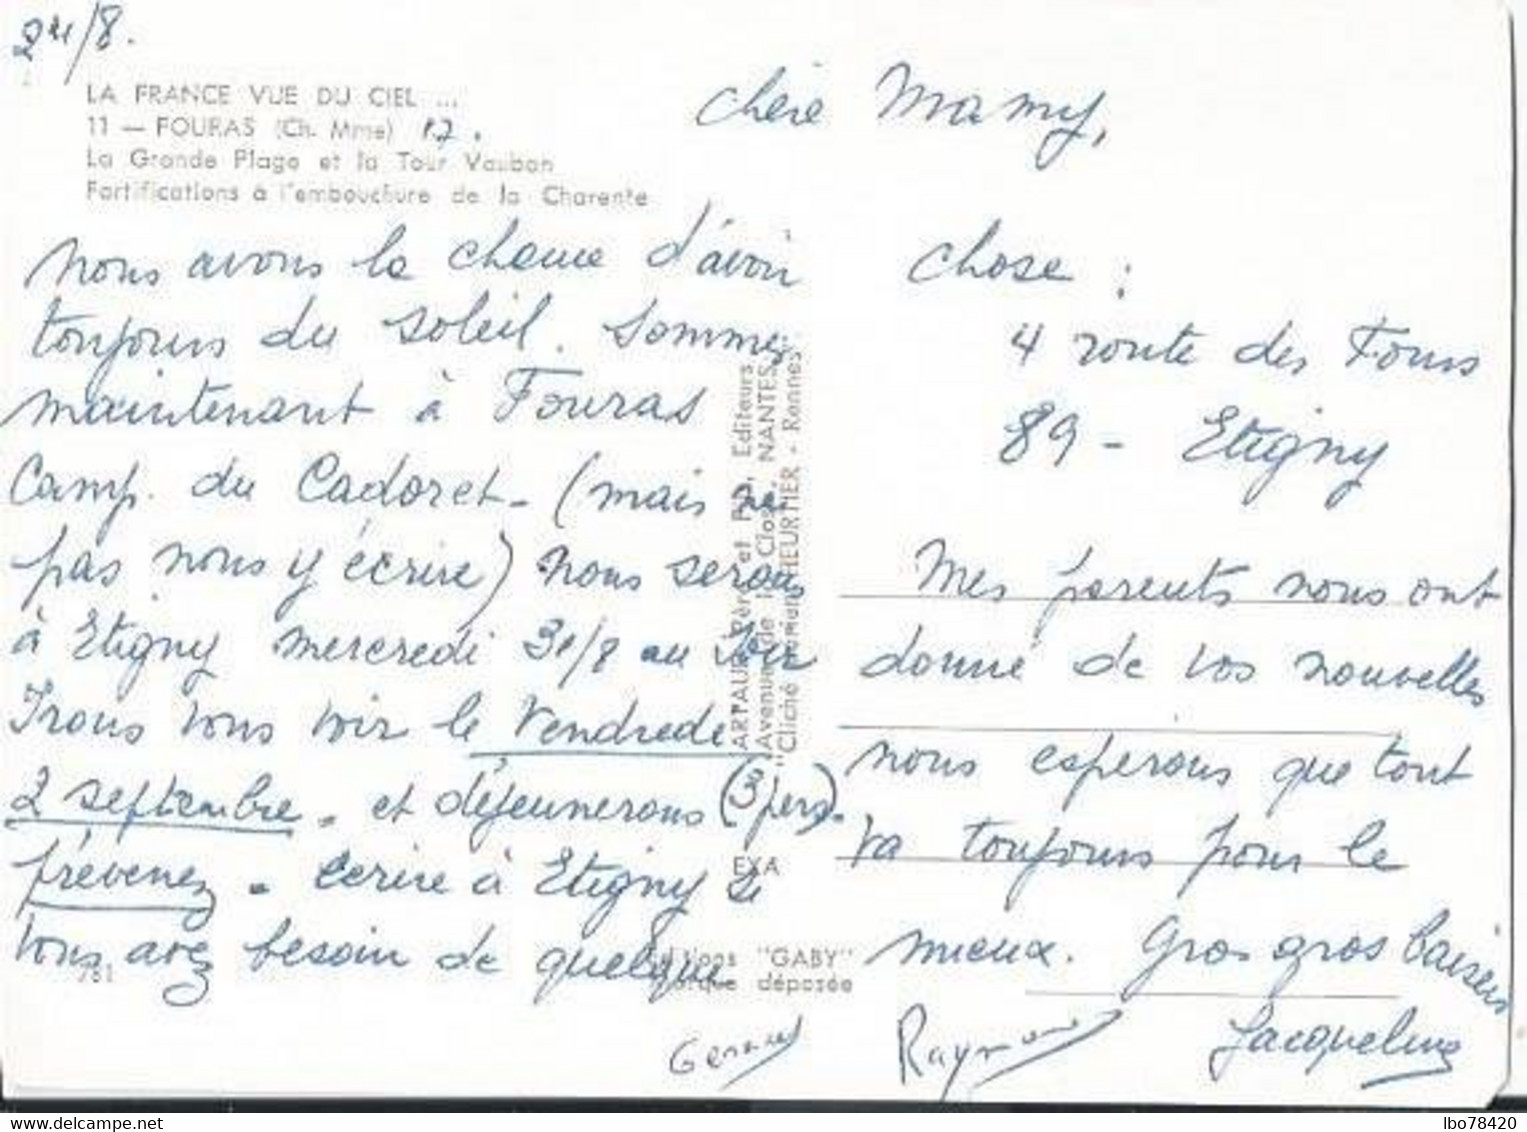 24/8.
LA FRANCE VUE DU CIEL ...
11 — FOURAS (Ch. Mme) 17.
La Grande Plage et la Tour Vauban
Fortifications à l'embouchure de la Charente
Chère Mamy,
nous avons la chance d'avoir
toujours du soleil. Sommes
maintenant à Fouras
Camp. du Cadoret - (mais ne
pas nous y écrire) nous serons
à Etigny mercredi 31/8 au soir
Irons vous voir le Vendredi
2 septembre. et déjeunerons (3 pers).
prévenez. écrire à Etigny si
vous avez besoin de quelque
chose :
4 route des Fours
89 - Etigny
Mes parents nous ont
donné de vos nouvelles
nous esperons que tout
va toujours pour le
mieux. Gros gros baisers
Raymond
Jacqueline
ARTAUD Père et Fils, Editeurs
Avenue de la Close, NANTES
"Cliché HEURTIER - Rennes"
EXA
Editions "GABY"
Marque déposée
781
lbo78420